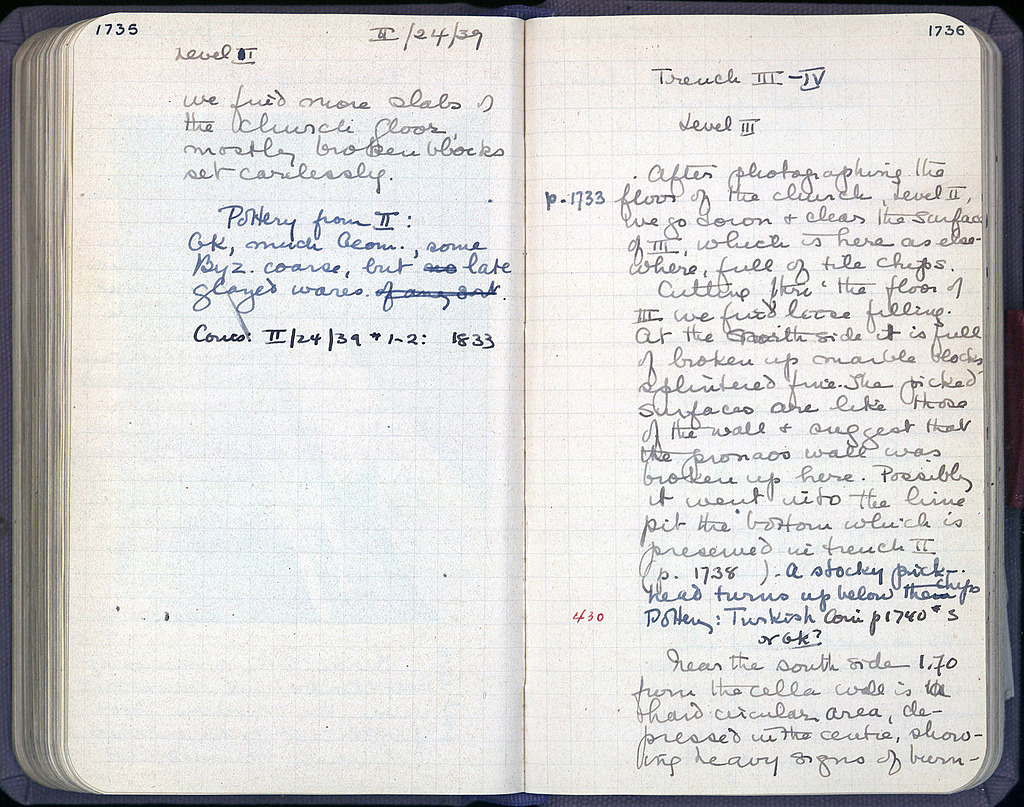 1735
II/24/39
Level II
we find more slabs of
the church floor,
mostly broken blocks
set carelessly.
Pottery from II:
Gk, much Geom., some
Byz. coarse, but no late
glazed wares of any sort.
Coins: II/24/39 #1-2: 1833
1736
Trench III-IV
Level III
After photographing the
p. 1733 floor of the church, Level II,
we go down + clear the surface
of III, which is here as else-
where, full of tile chips.
Cutting thru the floor of
III we find loose filling.
At the south side it is full
of broken up marble blocks
splintered fine. The picked
surfaces are like those
of the wall + suggest that
the pronaos wall was
broken up here. Possibly
it went into the lime
pit the bottom which is
preserved in trench II
(p. 1738 ). A stocky pick-
head turns up below the chips
430 Pottery: Turkish Coin p 1740 #3
or Gk?
Near the south side 1.70
from the cella wall is
hard circular area, de-
pressed in the centre, show-
ing heavy signs of burn-